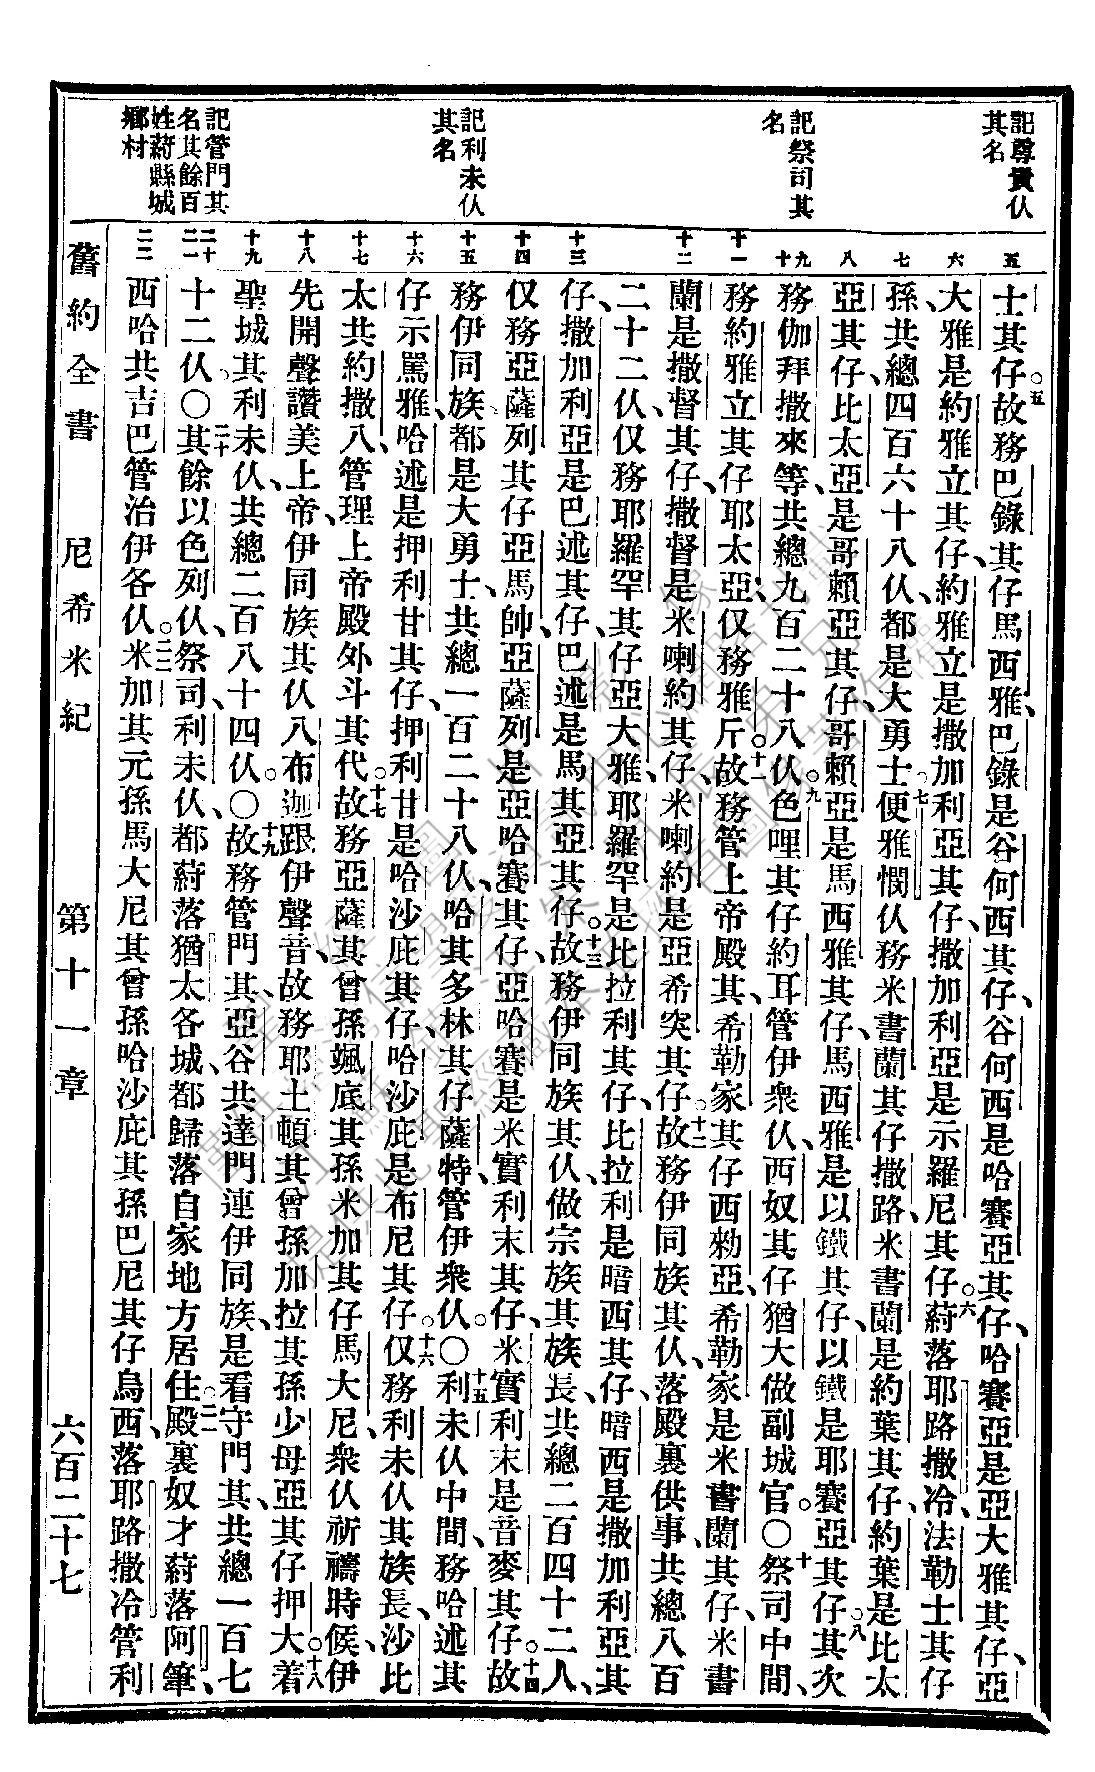 記尊貴仈
其名
記祭司其
名
記利未仈
其名
記管門其
名其餘百
姓蒔縣城
鄉村
五
六
七
八
九 十
十一
十二
十三
十四
十五
十六
十七
十八
十九
二十 二一
二二
士其仔。五故務巴錄其仔馬西雅、巴錄是谷何西其仔、谷何西是哈賽亞其仔、哈賽亞是亞大雅其仔、亞
大雅是約雅立其仔、約雅立是撒加利亞其仔、撒加利亞是示羅尼其仔。六蒔落耶路撒冷法勒士其仔
孫共總四百六十八仈、都是大勇士。七便雅憫仈務米書蘭其仔撒路、米書蘭是約葉其仔、約葉是比太
亞其仔、比太亞是哥賴亞其仔、哥賴亞是馬西雅其仔、馬西雅是以鐵其仔、以鐵是耶賽亞其仔。八其次
務伽拜撒來等、共總九百二十八仈。九色哩其仔約耳管伊衆仈、西奴其仔猶大做副城官。〇十祭司中間、
務約雅立其仔耶太亞、仅務雅斤。十一故務管上帝殿其、希勒家其仔西勑亞、希勒家是米書蘭其仔、米書
蘭是撒督其仔、撒督是米喇約其仔、米喇約是亞希突其仔。十二故務伊同族其仈、落殿裏供事、共總八百
二十二仈、仅務耶羅罕其仔亞大雅、耶羅罕是比拉利其仔、比拉利是暗西其仔、暗西是撒加利亞其
仔、撒加利亞是巴述其仔、巴述是馬其亞其仔。十三故務伊同族其仈、做宗族其族長、共總二百四十二人、
仅務亞薩列其仔亞馬帥、亞薩列是亞哈賽其仔、亞哈賽是米實利末其仔、米實利末是音麥其仔。十四故
務伊同族、都是大勇士、共總一百二十八仈、哈其多林其仔薩特、管伊衆仈。〇十五利未仈中間、務哈述其
仔示罵雅、哈述是押利甘其仔、押利甘是哈沙庇其仔、哈沙庇是布尼其仔。十六仅務利未仈其族長、沙比
太共約撒八、管理上帝殿外斗其代。十七故務亞薩其曾孫颯底其孫米加其仔馬大尼、衆仈祈禱時候、伊
先開聲讚美上帝、伊同族其仈八布迦、跟伊聲音、故務耶土頓其曾孫加拉其孫少母亞其仔押大着。十八
聖城其利未仈、共總二百八十四仈。〇十九故務管門其、亞谷共達門、連伊同族、是看守門其、共總一百七
十二仈。〇二十其餘以色列仈、祭司利未仈、都蒔落猶太各城、都歸落自家地方居住。二一殿裏奴才蒔落阿筆、
西哈共吉巴管治伊各仈。二二米加其元孫馬大尼其曾孫哈沙庇其孫巴尼其仔烏西、落耶路撒冷管利
舊約全書 尼希米紀 第十一章 六百二十七